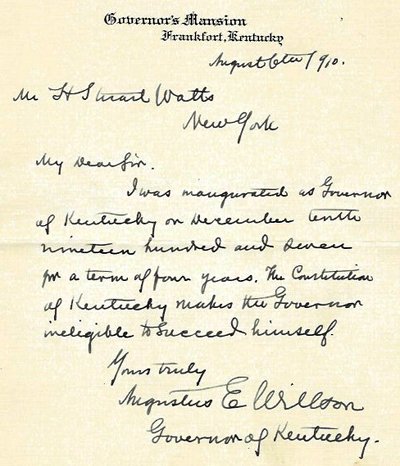 Governor's Mansion
Frankfort, Kentucky
August 6th/910.
Mr H Stuart Watts
New York
My Dear Sir.
I was inaugurated as Governor
of Kentucky on December tenth
nineteen hundred and seven
for a term of four years. The Constitution
of Kentucky makes the Governor
ineligible to succeed himself.
Yours truly
Augustus E Willson
Governor of Kentucky.